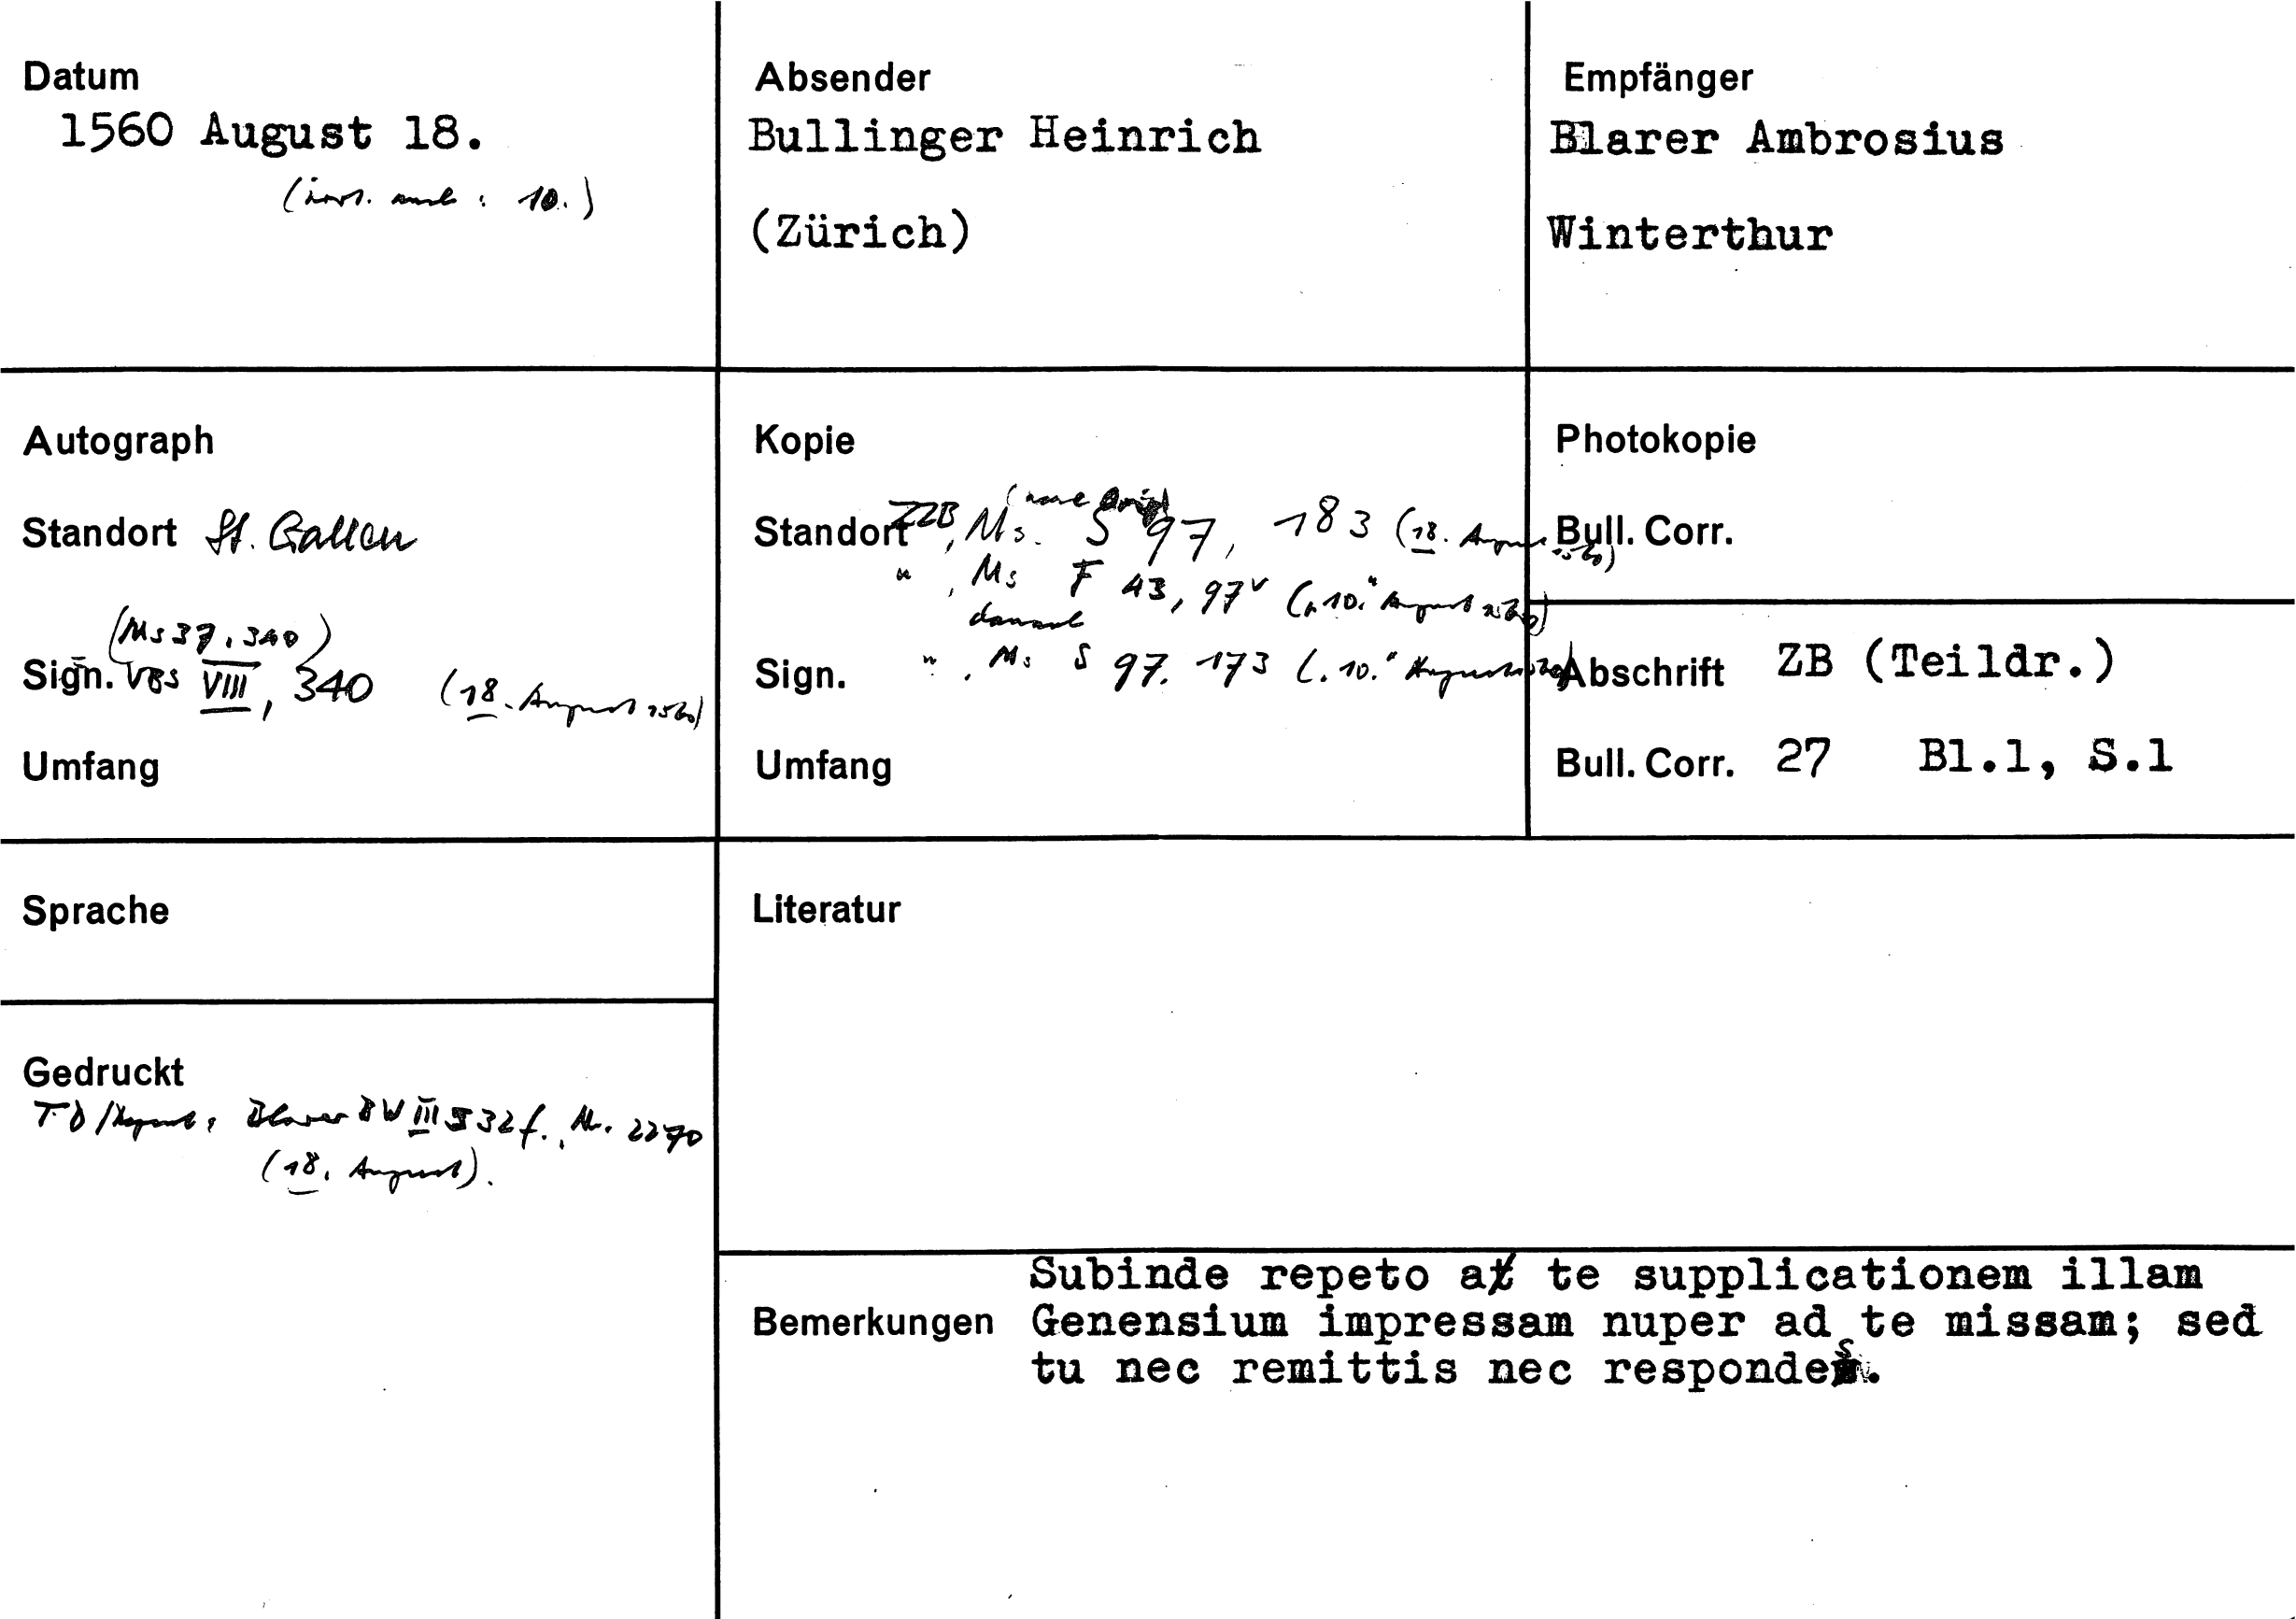 Datum
1560 August 18.
(irrt. auch: 10.)
Absender
Bullinger Heinrich
(Zürich)
Empfänger
Blarer Ambrosius
Winterthur
Autograph
Standort St. Gallen
(Ms 37, 340)
Sign. VBS VIII, 340 (18. August 1560)
Umfang
Kopie
Standort ZZB, Ms. S 97, 183 (18. August 1560)
" , Ms F 43, 97v ("10." August 1560)
danach
Sign. " , Ms S 97, 173 ("10." August 1560)
Umfang
Photokopie
Bull. Corr.
Abschrift ZB (Teildr.)
Bull. Corr. 27 Bl.1, S.1
Sprache
Gedruckt
TD/Regest: Blarer BW III 532f., Nr. 2270
(18. August).
Literatur
Bemerkungen
Subinde repeto a te supplicationem illam
Genensium impressam nuper ad te missam; sed
tu nec remittis nec respondes.